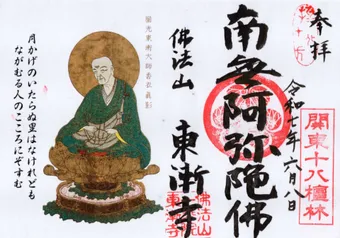 奉拝
關東十八檀林
令和七年六月八日
南無阿弥陀佛
佛法山
東漸寺
佛法山
東漸寺
圓光東漸大師
月かげのいたらぬ里はなけれども
ながむる人のこころにぞすむ